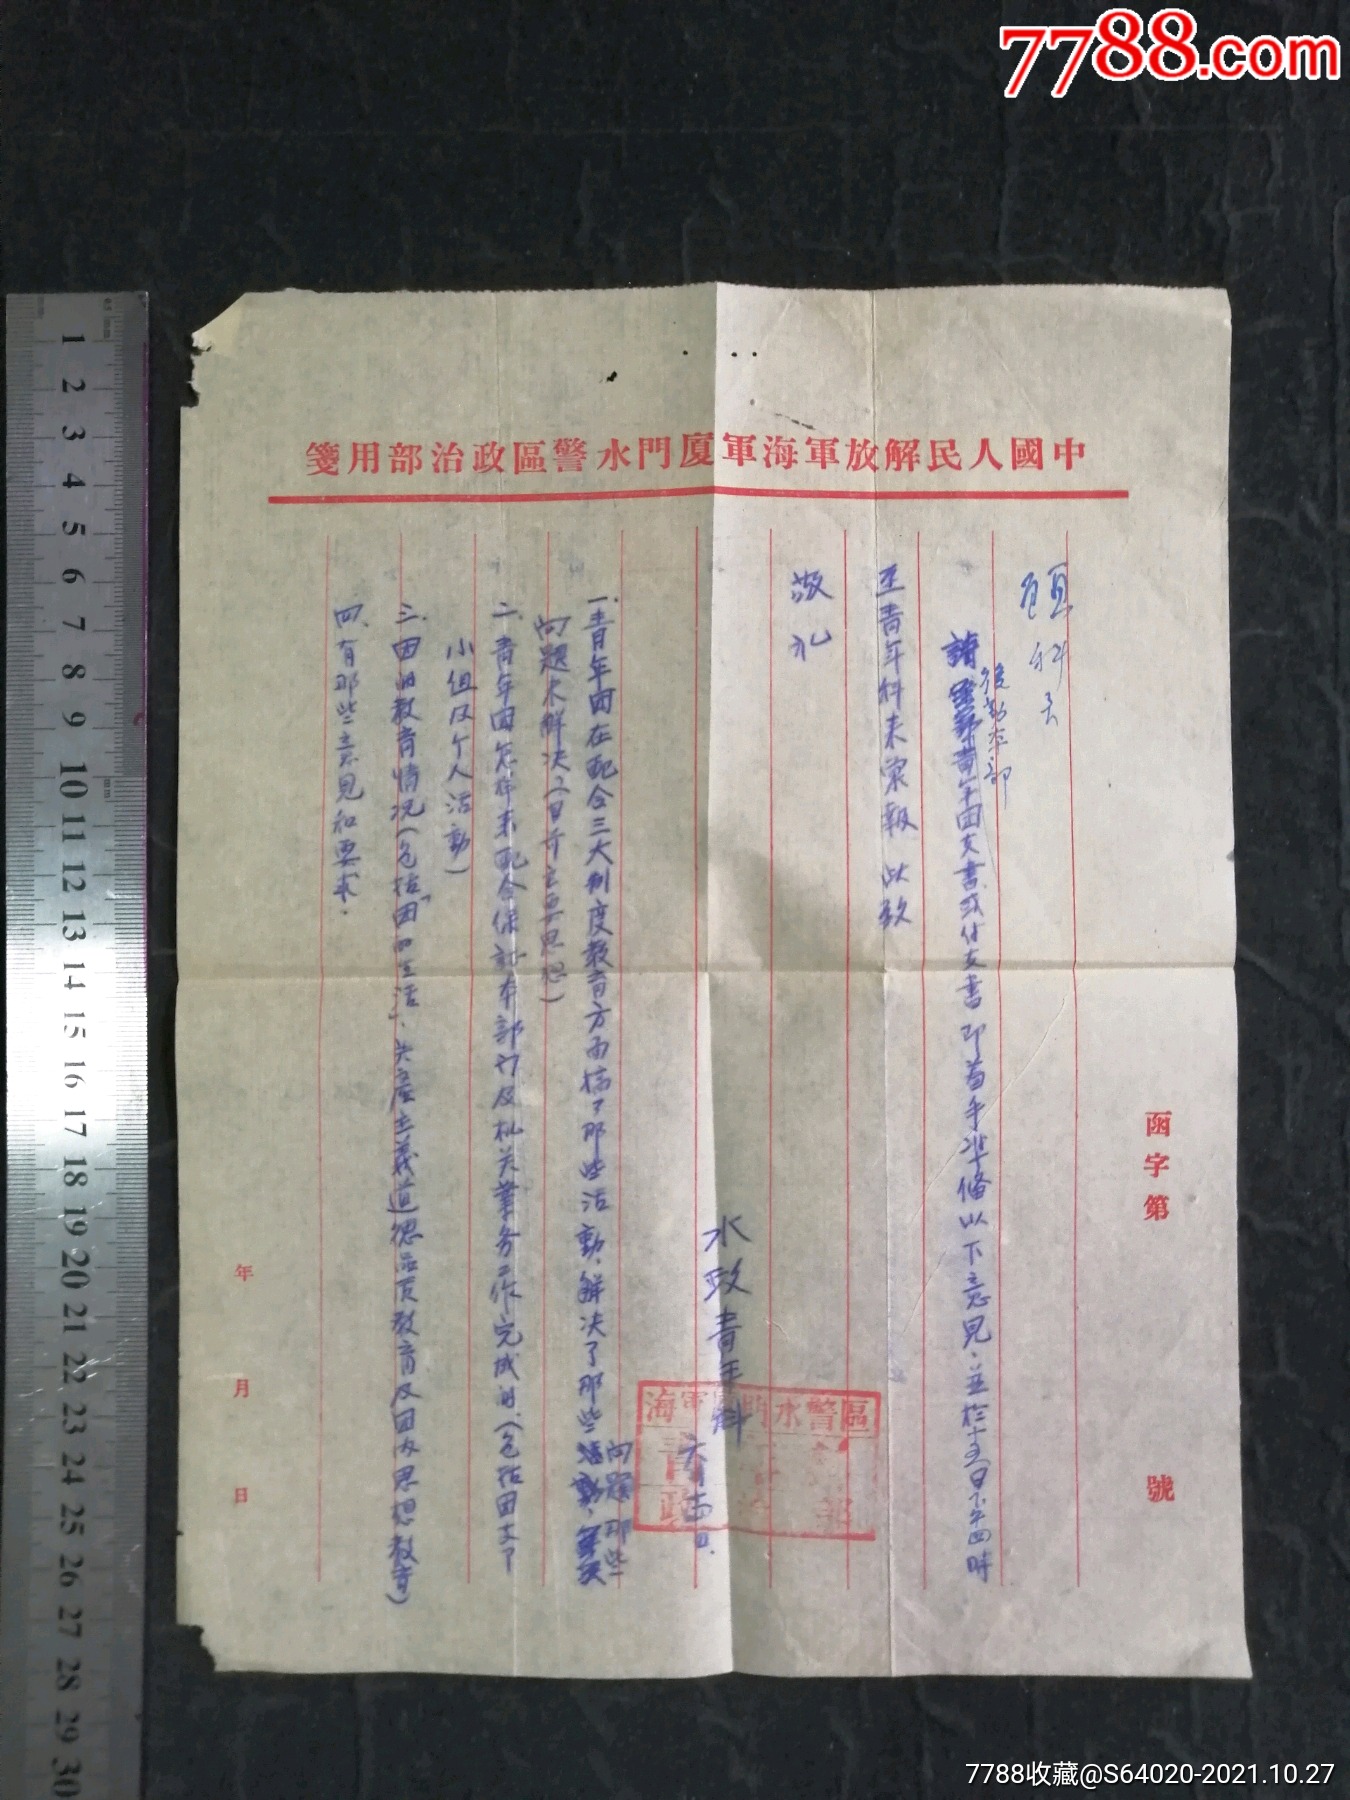 7788.com
中國人民解放軍海軍廈門水警區政治部用箋
函字第 號
顧科長
請後勤本部青年团支書或付支書即着手準備以下意見,並於十五日下午四時
至青年科来彙報 此致
敬礼
水政青年科
海軍廈門水警區
政 部
一.青年团在配合三大制度教育方面搞了那些活動,解决了那些問題那些
问题未解决(目前主要思想)
二.青年团怎样来配合保証本部门及机关業务工作完成的.(包括团支下
小组及个人活動)
三.团的教育情况(包括"团的生活"、共產主義道德品质教育及团内思想教育)
四.有那些意見和要求.
年 月 日
1 2 3 4 5 6 7 8 9 10 11 12 13 14 15 16 17 18 19 20 21 22 23 24 25 26 27 28 29 30
7788收藏@S64020-2021.10.27